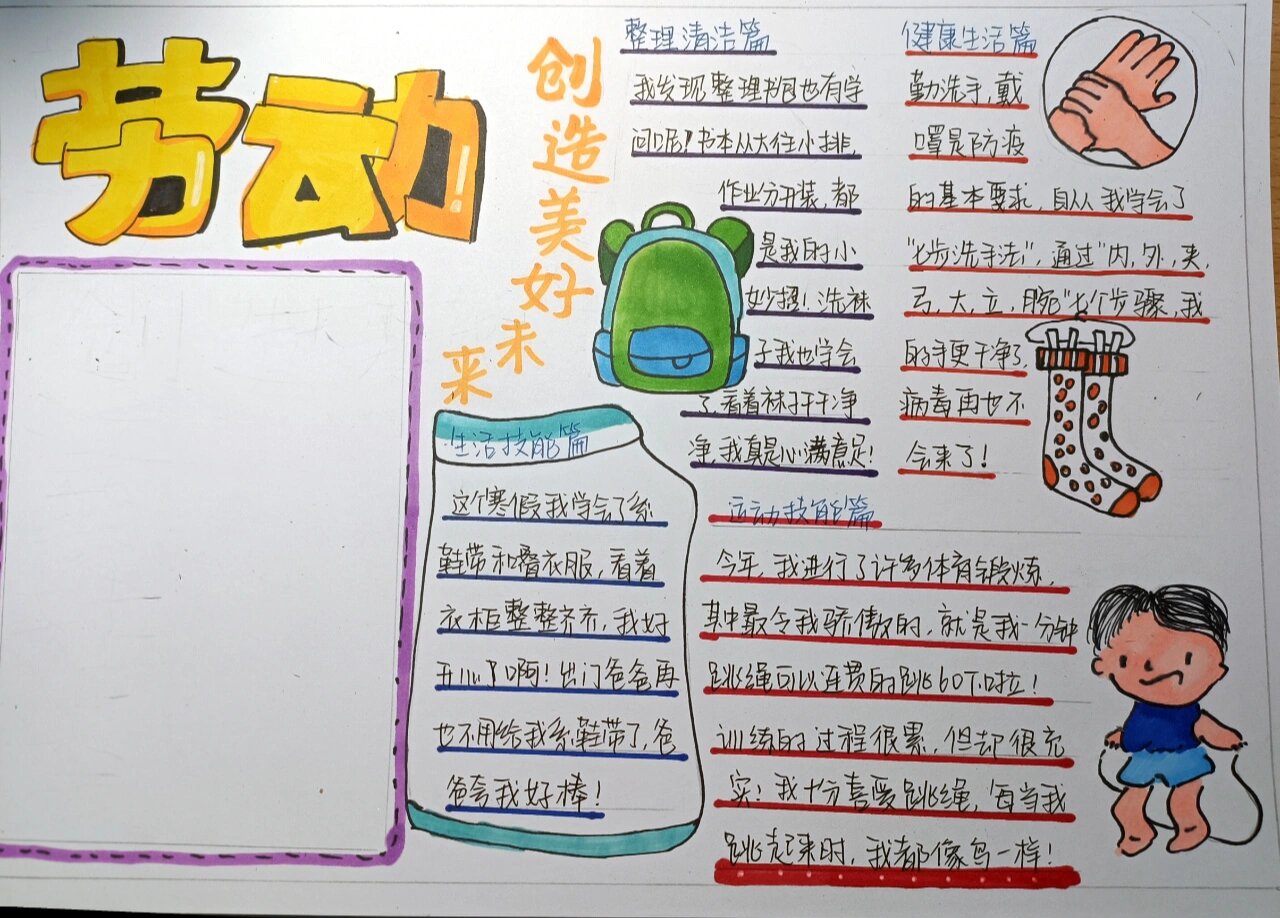 劳动
创造美好未来
整理清洁篇
我发现整理书包也有学
问呢！书本从大往小排，
作业分开装，都
是我的小
妙招！洗袜
子我也学会
了，看着袜子干干净
净，我真是心满意足！
健康生活篇
勤洗手，戴
口罩是防疫
的基本要求，自从我学会了
“七步洗手法”，通过“内，外，夹，
弓，大，立，腕”七个步骤，我
的手更干净了，
病毒再也不
会来了！
生活技能篇
这个寒假我学会了系
鞋带和叠衣服，看着
衣柜整整齐齐，我好
开心了啊！出门爸爸再
也不用给我系鞋带了，爸
爸夸我好棒！
运动技能篇
今年，我进行了许多体育锻炼，
其中最令我骄傲的，就是我一分钟
跳绳可以连贯的跳60下啦！
训练的过程很累，但却很充
实！我十分喜爱跳绳，每当我
跳起来时，我都像鸟一样！